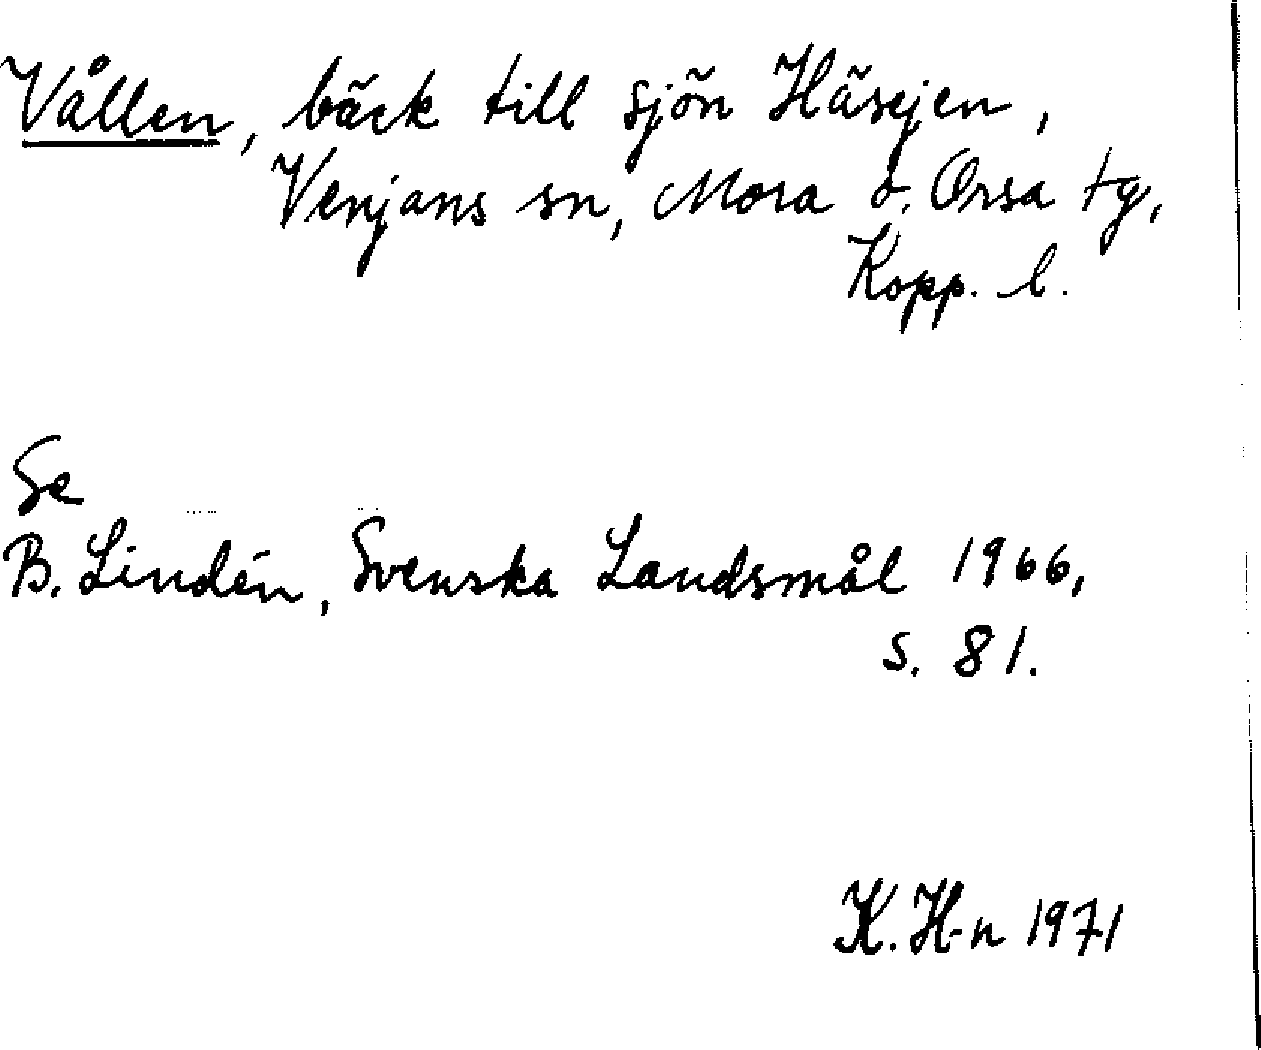 Vållen, bäck till sjön Häsejen,
Venjans sn, Mora o. Orsa tg,
Kopp. l.
Se
B. Lindén, Svenska Landsmål 1966,
s. 81.
K. H-n 1971